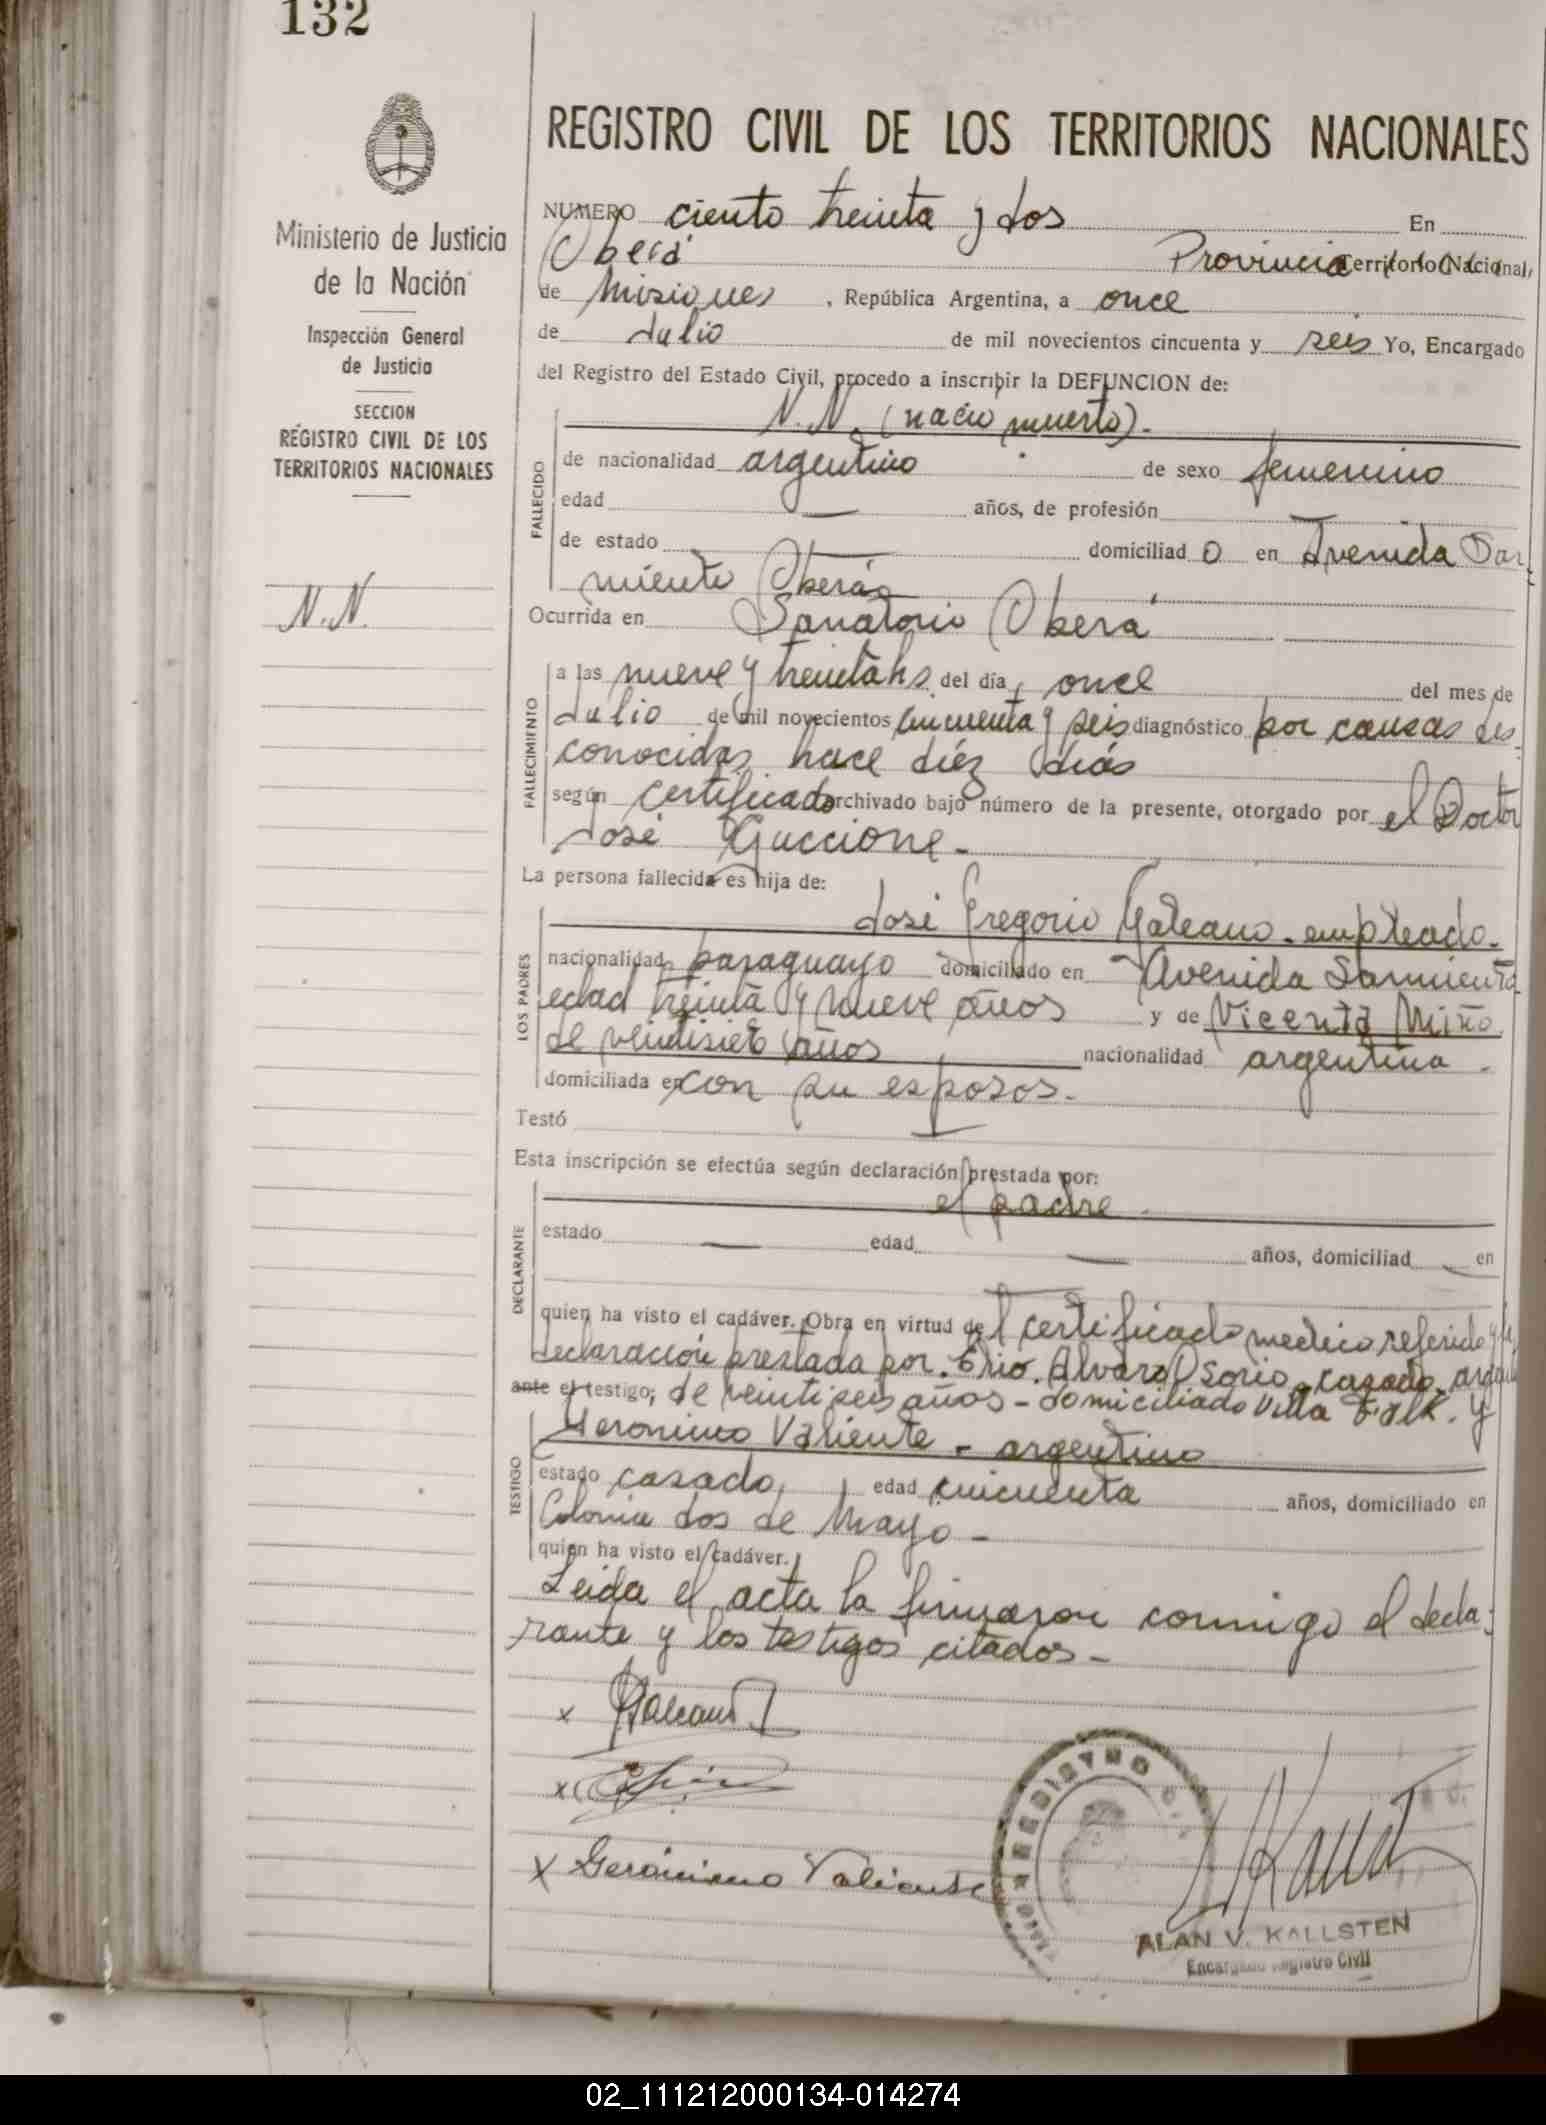 132
Ministerio de Justicia
de la Nación
Inspección General
de Justicia
SECCION
REGISTRO CIVIL DE LOS
TERRITORIOS NACIONALES
N.N.
REGISTRO CIVIL DE LOS TERRITORIOS NACIONALES
NUMERO ciento treinta y dos En
Oberá Provincia Territorio Nacional,
de Misiones, República Argentina, a once
de Julio de mil novecientos cincuenta y seis Yo, Encargado
del Registro del Estado Civil, procedo a inscribir la DEFUNCION de:
N.N. (nacio muerto).-
FALLECIDO
de nacionalidad argentino de sexo femenino
edad — años, de profesión —
de estado — domiciliado en Avenida Sar-
miento Oberá
Ocurrida en Sanatorio Oberá
FALLECIMIENTO
a las nueve y treinta hs. del día once del mes de
Julio de mil novecientos cincuenta y seis diagnóstico por causas des-
conocidas hace diéz días
según certificado archivado bajo número de la presente, otorgado por el Doctor
José Guccione.-
La persona fallecida es hija de:
LOS PADRES
José Gregorio Galeano - empleado.-
nacionalidad paraguayo domiciliado en Avenida Sarmiento
edad treinta y nueve años y de Vicenta Miño
de veintisiete años nacionalidad argentina.-
domiciliada en con su esposos.-
Testó —
Esta inscripción se efectúa según declaración prestada por:
DECLARANTE
el padre.
estado — edad — años, domiciliad — en
—
quien ha visto el cadáver. Obra en virtud del certificado medico referido y la
declaración prestada por. Erio. Alvaro Osorio - casado -
ante el testigo; de veintiseis años - domiciliado Villa Falk. y
TESTIGO
Geronimo Valiente - argentino
estado casado, edad cincuenta años, domiciliado en
Colonia dos de Mayo -
quien ha visto el cadáver.
Leida el acta la firmaron conmigo el decla-
rante y los testigos citados -
x Galeano
x
x Gerónimo Valiente
REGISTRO
ALAN V. KALLSTEN
Encargado Registro Civil
02_111212000134-014274